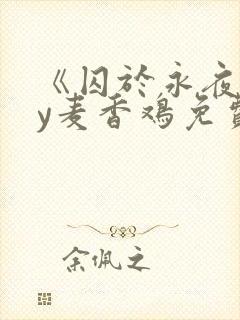 《囚於永夜
y麦香鸡免费
余佩之